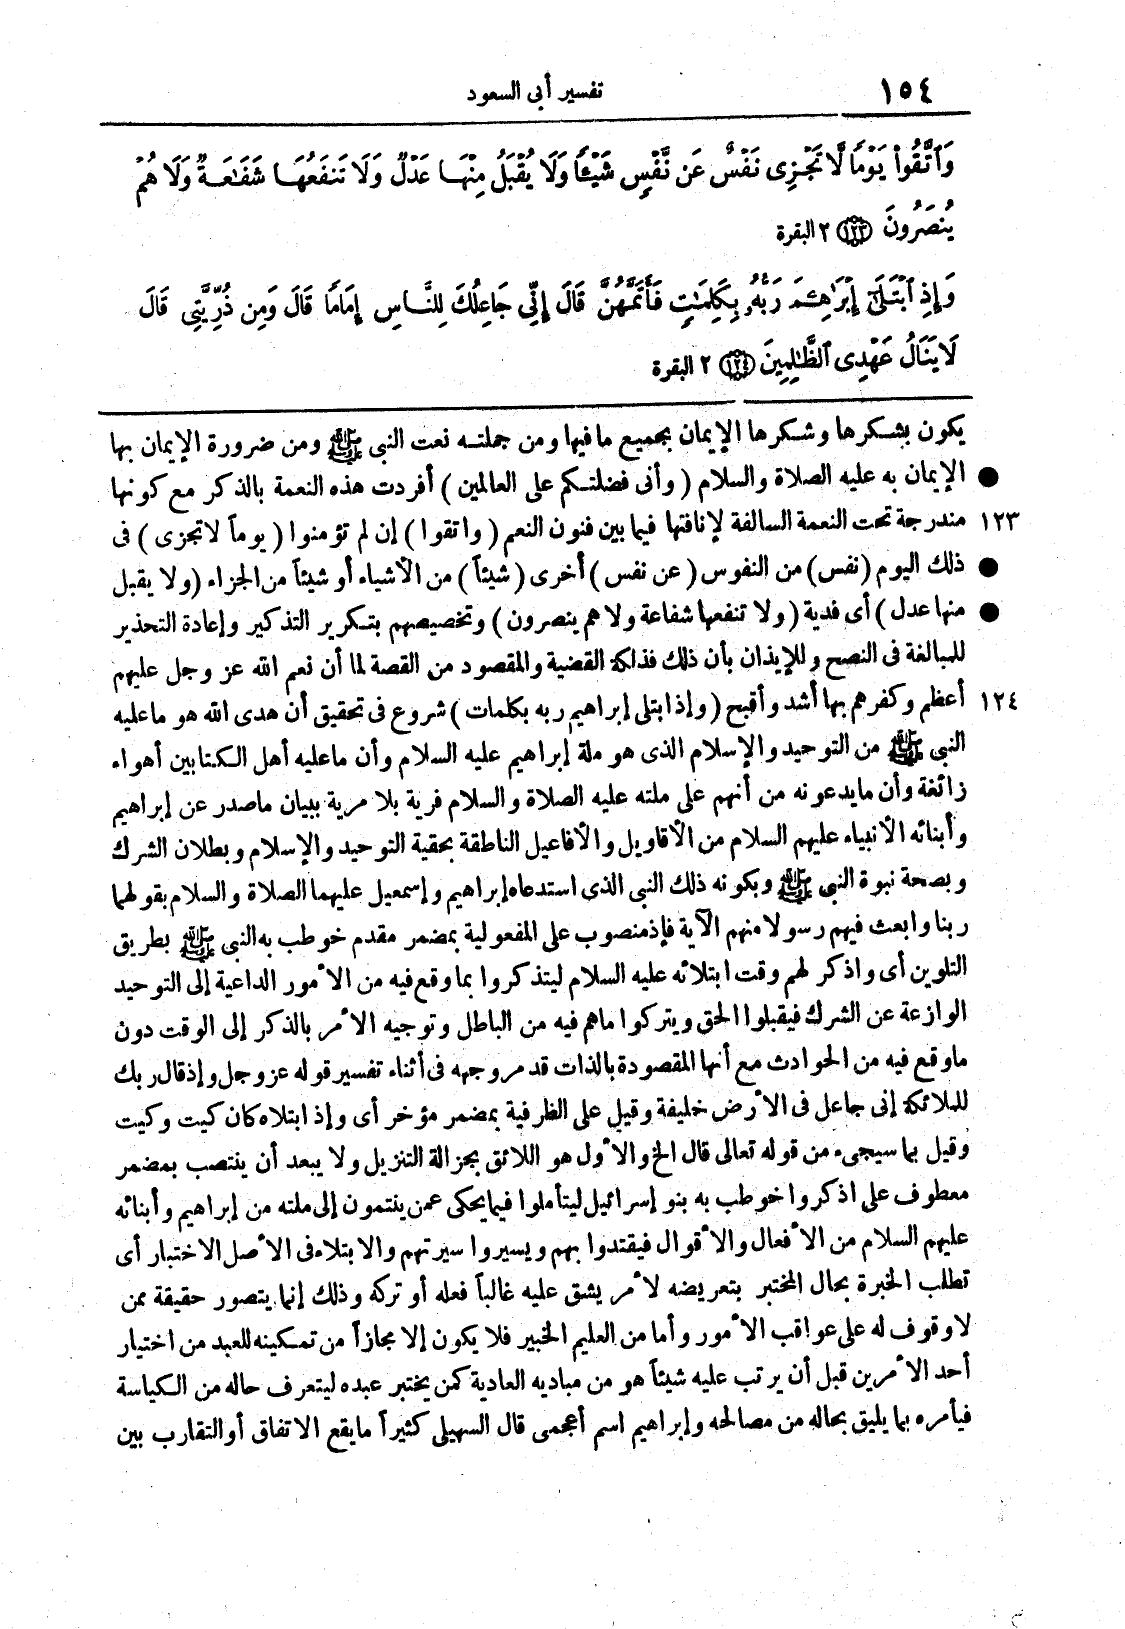 ١٥٤
تفسير أبى السعود
وَٱتَّقُوا۟ يَوْمًا لَّا تَجْزِى نَفْسٌ عَن نَّفْسٍ شَيْـًٔا وَلَا يُقْبَلُ مِنْهَا عَدْلٌ وَلَا تَنفَعُهَا شَفَـٰعَةٌ وَلَا هُمْ
يُنصَرُونَ ١٢٣ ٢ البقرة
وَإِذِ ٱبْتَلَىٰٓ إِبْرَٰهِـۧمَ رَبُّهُۥ بِكَلِمَـٰتٍ فَأَتَمَّهُنَّ قَالَ إِنِّى جَاعِلُكَ لِلنَّاسِ إِمَامًا قَالَ وَمِن ذُرِّيَّتِى قَالَ
لَا يَنَالُ عَهْدِى ٱلظَّـٰلِمِينَ ١٢٤ ٢ البقرة
يكون بشكرها وشكرها الإيمان بجميع ما فيها ومن جملته نعت النبى ﷺ ومن ضرورة الإيمان بها
● الإيمان به عليه الصلاة والسلام ( وأنى فضلتكم على العالمين ) أفردت هذه النعمة بالذكر مع كونها
١٢٣ مندرجة تحت النعمة السالفة لإنافتها فيما بين فنون النعم ( واتقوا ) إن لم تؤمنوا ( يوماً لا تجزى ) فى
● ذلك اليوم (نفس) من النفوس ( عن نفس ) أخرى ( شيئاً ) من الأشياء أو شيئاً من الجزاء (ولا يقبل
● منها عدل ) أى فدية ( ولا تنفعها شفاعة ولا هم ينصرون ) وتخصيصهم بتكرير التذكير وإعادة التحذير
للمبالغة فى النصح وللإيذان بأن ذلك فذلكة القضية والمقصود من القصة لما أن نعم الله عز وجل عليهم
١٢٤ أعظم وكفرهم بها أشد وأقبح ( وإذ ابتلى إبراهيم ربه بكلمات ) شروع فى تحقيق أن هدى الله هو ما عليه
النبى ﷺ من التوحيد والإسلام الذى هو ملة إبراهيم عليه السلام وأن ما عليه أهل الكتابين أهواء
زائغة وأن ما يدعونه من أنهم على ملته عليه الصلاة والسلام فرية بلا مرية ببيان ما صدر عن إبراهيم
وأبنائه الأنبياء عليهم السلام من الأقاويل والأفاعيل الناطقة بحقية التوحيد والإسلام وبطلان الشرك
وبصحة نبوة النبى ﷺ وبكونه ذلك النبى الذى استدعاه إبراهيم وإسمعيل عليهما الصلاة والسلام بقولهما
ربنا وابعث فيهم رسولا منهم الآية فإذ منصوب على المفعولية بمضمر مقدم خوطب به النبى ﷺ بطريق
التلوين أى واذكر لهم وقت ابتلائه عليه السلام ليتذكروا بما وقع فيه من الأمور الداعية إلى التوحيد
الوازعة عن الشرك فيقبلوا الحق ويتركوا ما هم فيه من الباطل وتوجيه الأمر بالذكر إلى الوقت دون
ما وقع فيه من الحوادث مع أنها المقصودة بالذات قد مر وجهه فى أثناء تفسير قوله عز وجل وإذ قال ربك
للملائكة إنى جاعل فى الأرض خليفة وقيل على الظرفية بمضمر مؤخر أى وإذ ابتلاه كان كيت وكيت
وقيل بما سيجىء من قوله تعالى قال الخ والأول هو اللائق بجزالة التنزيل ولا يبعد أن ينتصب بمضمر
معطوف على اذكروا خوطب به بنو إسرائيل ليتأملوا فيما يحكى عمن ينتمون إلى ملته من إبراهيم وأبنائه
عليهم السلام من الأفعال والأقوال فيقتدوا بهم ويسيروا سيرتهم والابتلاء فى الأصل الاختبار أى
تطلب الخبرة بحال المختبر بتعريضه لأمر يشق عليه غالباً فعله أو تركه وذلك إنما يتصور حقيقة ممن
لا وقوف له على عواقب الأمور وأما من العليم الخبير فلا يكون إلا مجازاً من تمكينه للعبد من اختيار
أحد الأمرين قبل أن يرتب عليه شيئاً هو من مباديه العادية كمن يختبر عبده ليتعرف حاله من الكياسة
فيأمره بما يليق بحاله من مصالحه وإبراهيم اسم أعجمى قال السهيلى كثيراً ما يقع الاتفاق أو التقارب بين